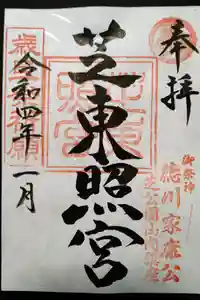 奉拝
御祭神
徳川家康公
芝公園山内鎮座
芝東照宮
歳旦祈願
令和四年一月